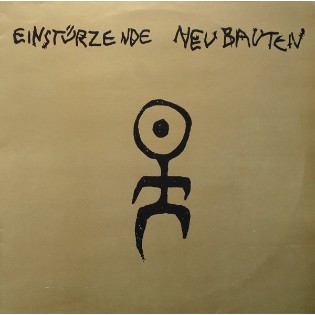 EINSTÜRZENDE NEUBAUTEN